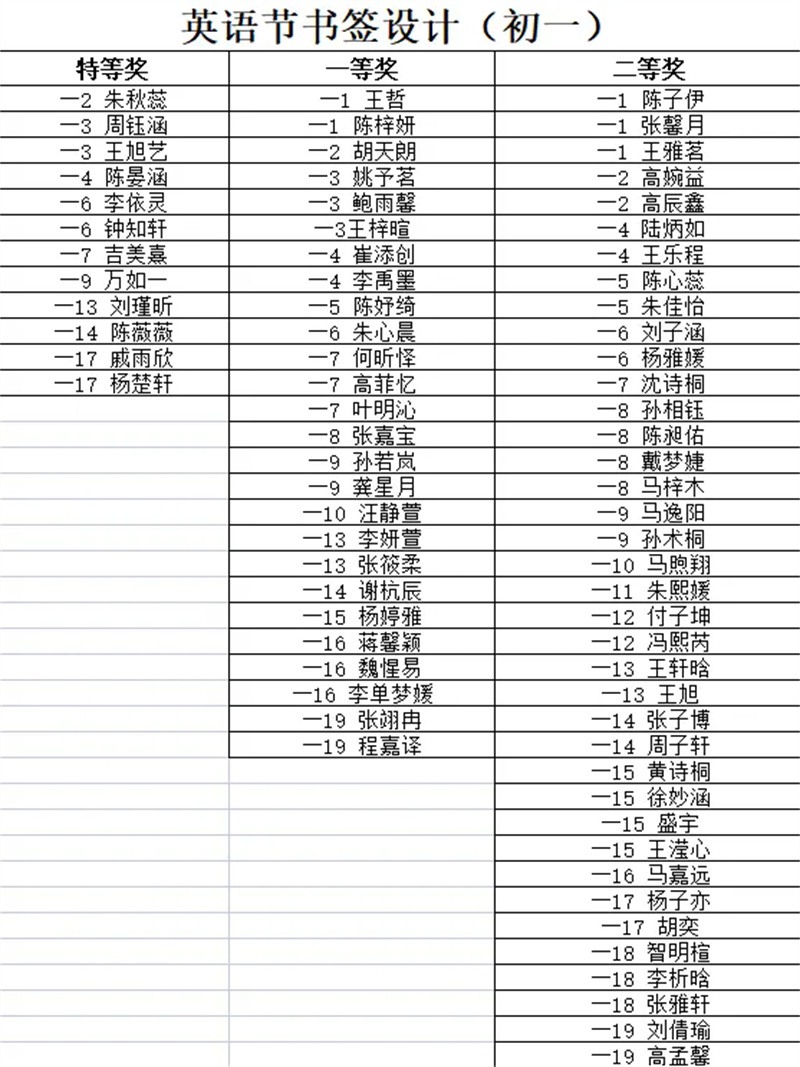 英语节书签设计（初一）
特等奖 一等奖 二等奖
一2 朱秋蕊 一1 王哲 一1 陈子伊
一3 周钰涵 一1 陈梓妍 一1 张馨月
一3 王旭艺 一2 胡天朗 一1 王雅茗
一4 陈晏涵 一3 姚予茗 一2 高婉益
一6 李依灵 一3 鲍雨馨 一2 高辰鑫
一6 钟知轩 一3王梓暄 一4 陆炳如
一7 吉美熹 一4 崔添创 一4 王乐程
一9 万如一 一4 李禹墨 一5 陈心蕊
一13 刘瑾昕 一5 陈妤绮 一5 朱佳怡
一14 陈薇薇 一6 朱心晨 一6 刘子涵
一17 戚雨欣 一7 何昕怿 一6 杨雅媛
一17 杨楚轩 一7 高菲忆 一7 沈诗桐
一7 叶明沁 一8 孙相钰
一8 张嘉宝 一8 陈昶佑
一9 孙若岚 一8 戴梦婕
一9 龚星月 一8 马梓木
一10 汪静萱 一9 马逸阳
一13 李妍萱 一9 孙术桐
一13 张筱柔 一10 马煦翔
一14 谢杭辰 一11 朱熙媛
一15 杨婷雅 一12 付子坤
一16 蒋馨颖 一12 冯熙芮
一16 魏惺易 一13 王轩晗
一16 李单梦媛 一13 王旭
一19 张翊冉 一14 张子博
一19 程嘉译 一14 周子轩
一15 黄诗桐
一15 徐妙涵
一15 盛宇
一15 王滢心
一16 马嘉远
一17 杨子亦
一17 胡奕
一18 智明楦
一18 李析晗
一18 张雅轩
一19 刘倩瑜
一19 高孟馨